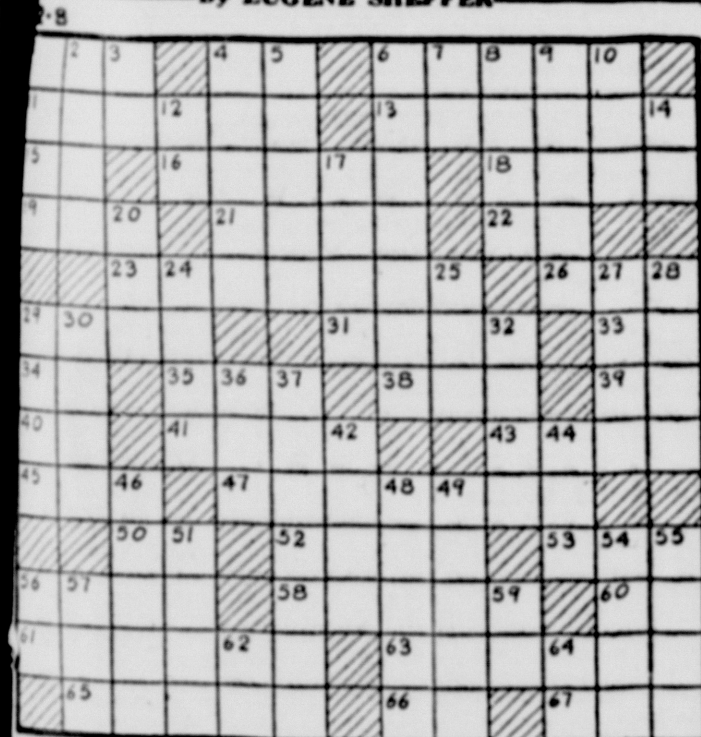 By EUGENE SHEFFER
2-8
2 3 4 5 6 7 8 9 10
11 12 13 14
15 16 17 18
19 20 21 22
23 24 25 26 27 28
29 30 31 32 33
34 35 36 37 38 39
40 41 42 43 44
45 46 47 48 49
50 51 52 53 54 55
56 57 58 59 60
61 62 63 64
65 66 67